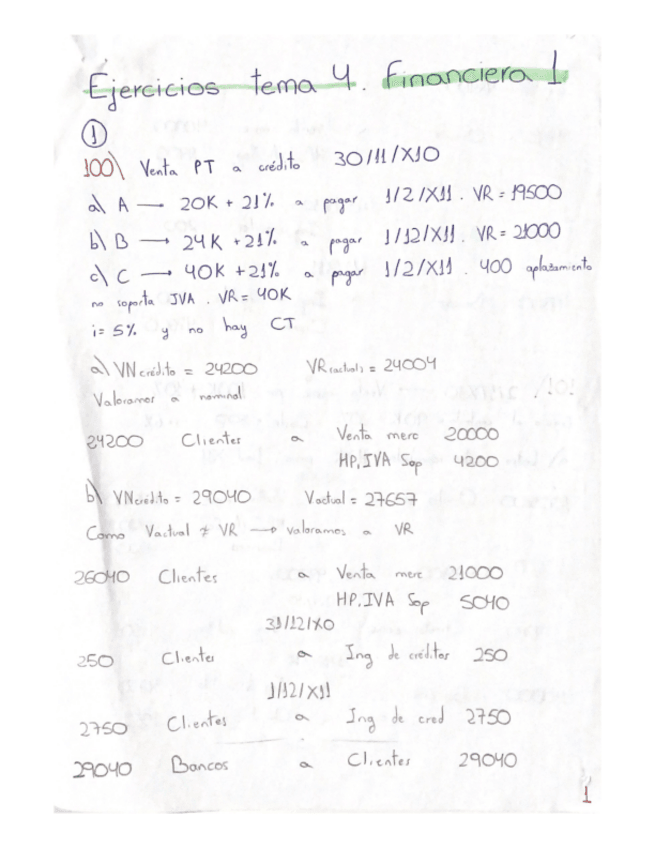 Ejercicios tema 4. Financiera 1
1
100) Venta PT a crédito 30/11/X10
a) A → 20K + 21% a pagar 1/2/X11. VR = 19500
b) B → 24K + 21% a pagar 1/12/X11. VR = 21000
c) C → 40K + 21% a pagar 1/2/X11. 400 aplazamiento
no soporta IVA. VR = 40K
i = 5% y no hay CT
a) VN crédito = 24200 VR (actual) = 24004
Valoramos a nominal
24200 Clientes a Venta merc 20000
HP, IVA Sop 4200
b) VN crédito = 29040 Vactual = 27657
Como Vactual ≠ VR → valoramos a VR
26040 Clientes a Venta merc 21000
HP, IVA Sop 5040
31/12/X0
250 Clientes a Ing de créditos 250
1/12/X11
2750 Clientes a Ing de cred 2750
29040 Bancos a Clientes 29040
1